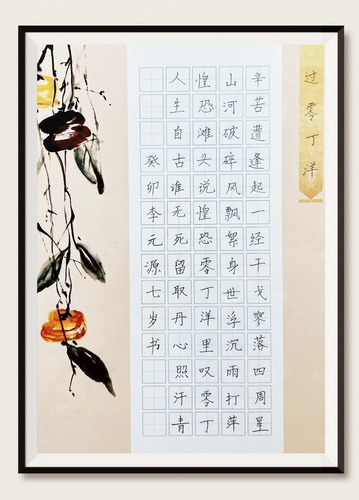 过零丁洋
辛苦遭逢起一经干戈寥落四周星
山河破碎风飘絮身世浮沉雨打萍
惶恐滩头说惶恐零丁洋里叹零丁
人生自古谁无死留取丹心照汗青
癸卯李元源七岁书